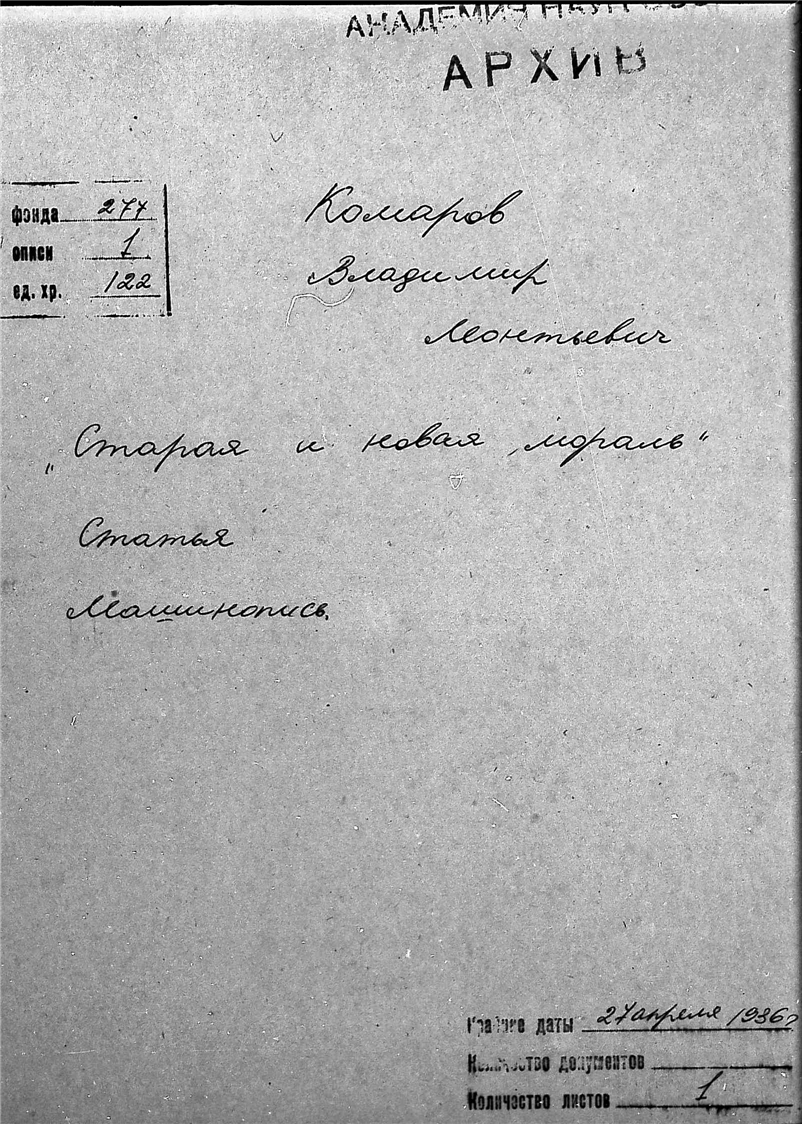 АКАДЕМИЯ НАУК СССР
АРХИВ
фонда 277
описи 1
ед. хр. 122
Комаров
Владимир
Леонтьевич
„Старая и новая мораль“
Статья
Машинопись.
Крайние даты 27 апреля 1936 г
Количество документов
Количество листов 1